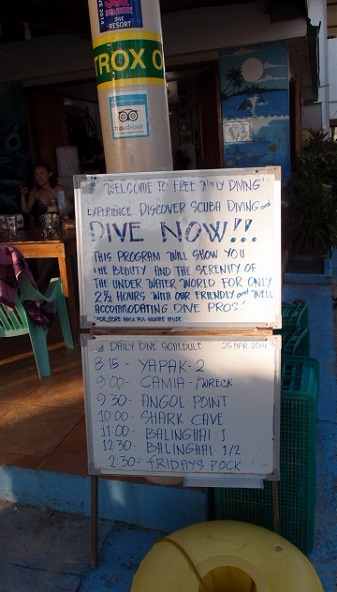 DIVE
RESORT
TROX O
tripadvisor
"WELCOME TO FREE WILLY DIVING"
EXPERIENCE DISCOVER SCUBA DIVING and
DIVE NOW!!!
THIS PROGRAM WILL SHOW YOU
THE BEAUTY AND THE SERENITY OF
THE UNDER WATER WORLD FOR ONLY
2½ HOURS WITH OUR FRIENDLY and WELL
ACCOMMODATING DIVE PROS
FOR MORE INFO PLS. INQUIRE INSIDE
DAILY DIVE SCHEDULE 25 APR 2014
8:15 - YAPAK-2
9:00 - CAMIA - WRECK
9:30 - ANGOL POINT
10:00 - SHARK CAVE
11:00 - BALINGHAI 1
12:30 - BALINGHAI 1/2
2:30 - FRIDAYS ROCK